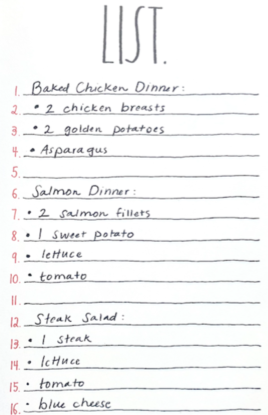 LIST.
1. Baked Chicken Dinner:
2. • 2 chicken breasts
3. • 2 golden potatoes
4. • Asparagus
5.
6. Salmon Dinner:
7. • 2 salmon fillets
8. • 1 sweet potato
9. • lettuce
10. • tomato
11.
12. Steak Salad:
13. • 1 steak
14. • lettuce
15. • tomato
16. • blue cheese